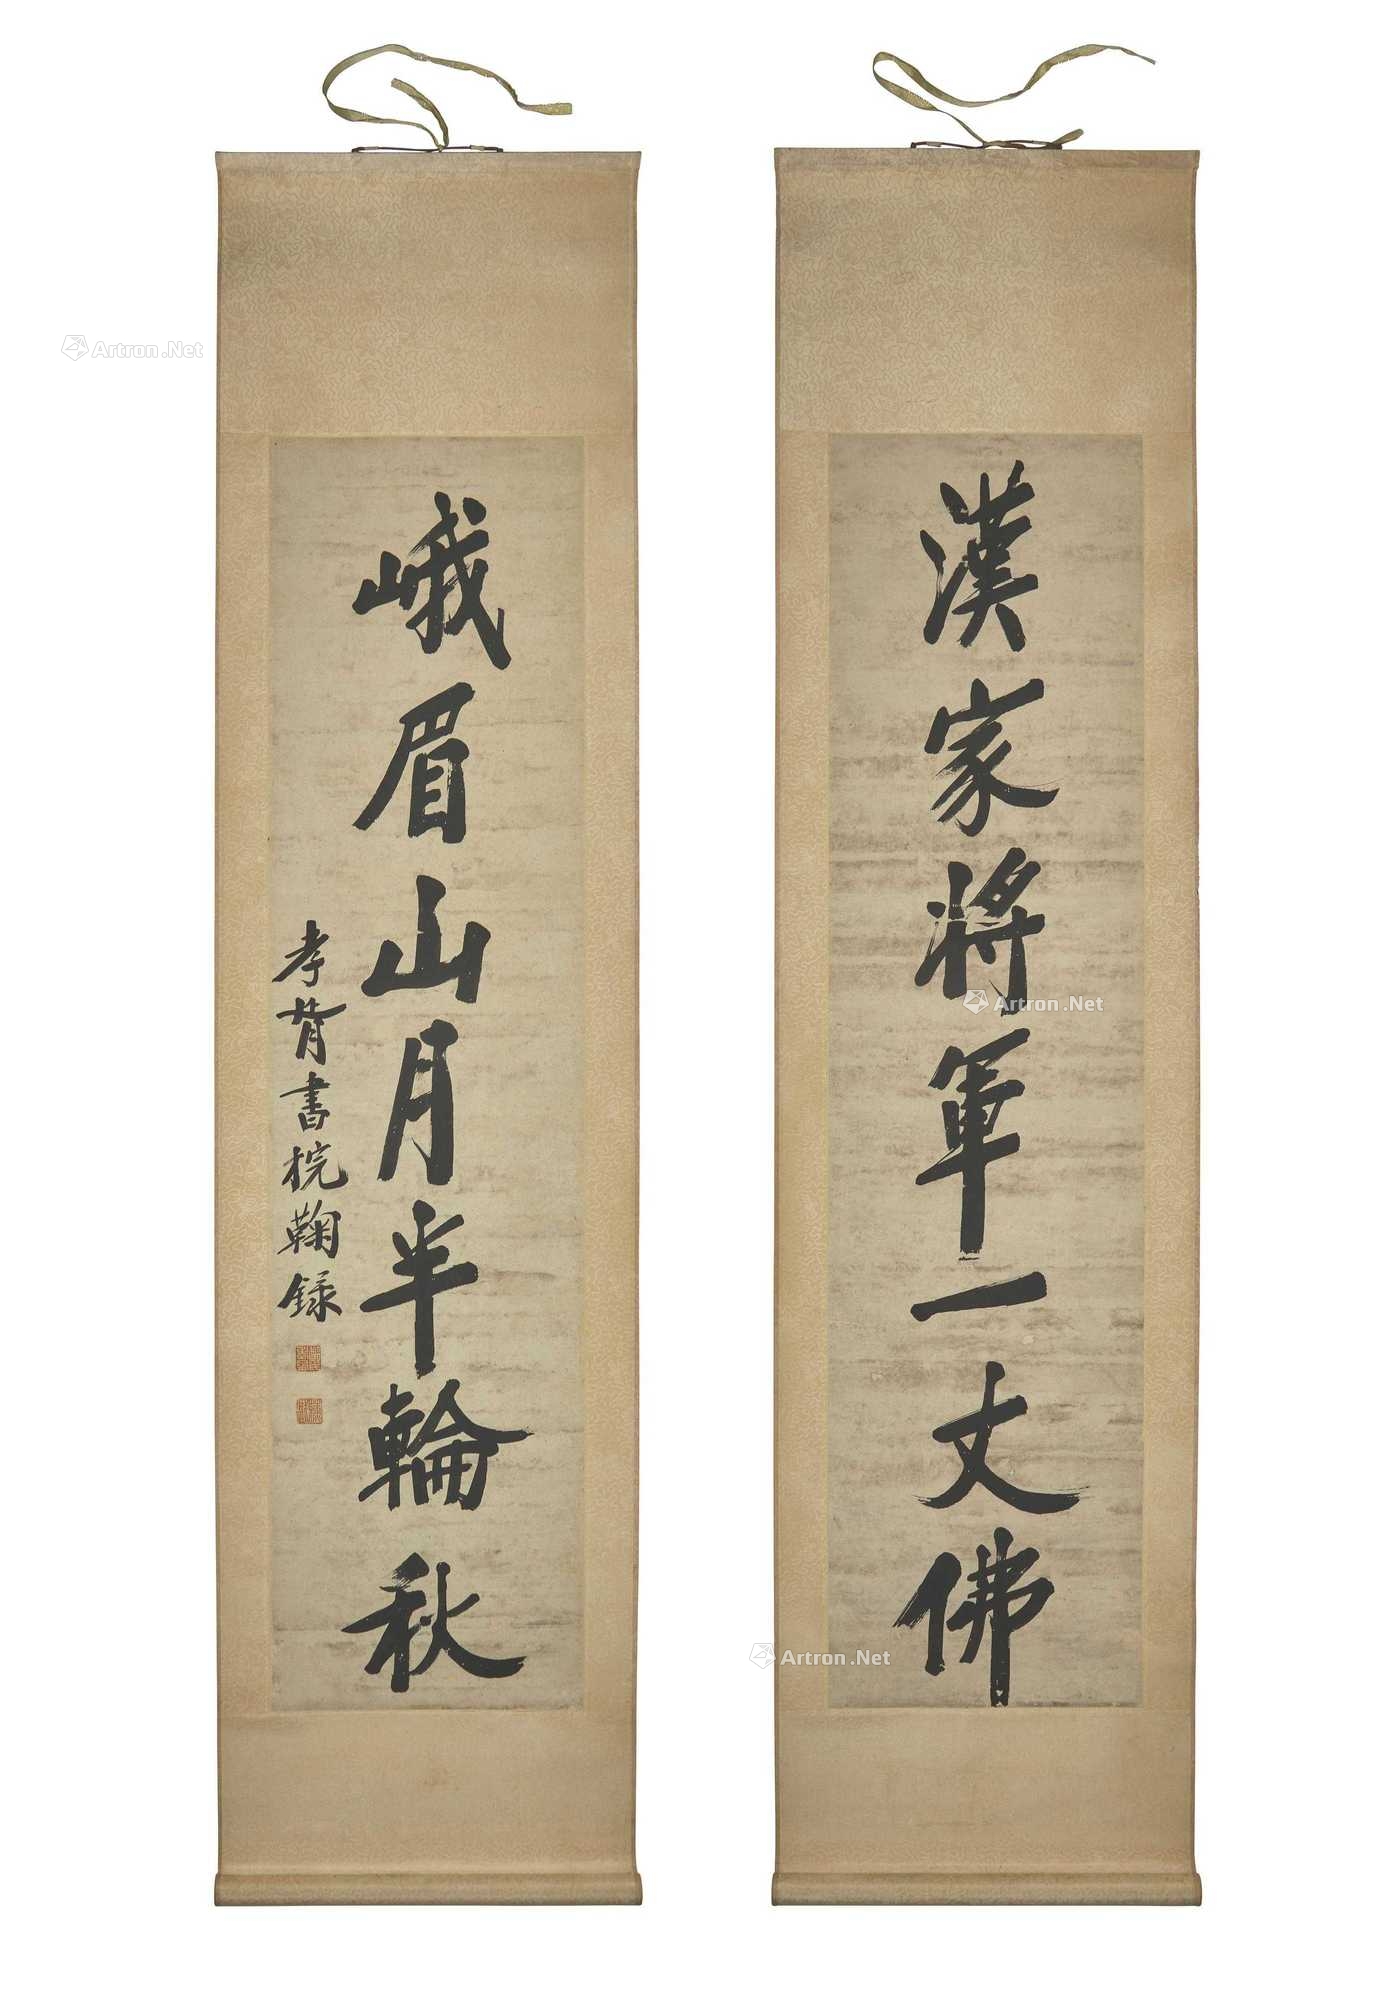 漢家將軍一丈佛
峨眉山月半輪秋
孝胥書
鞠録
Artron.Net
Artron.Net
Artron.Net